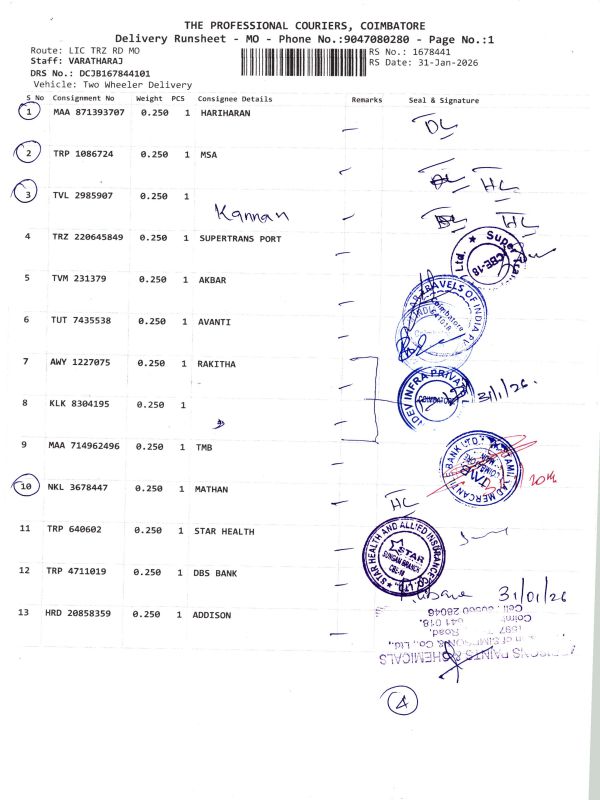 THE PROFESSIONAL COURIERS, COIMBATORE
Delivery Runsheet - MO - Phone No.:9047080280 - Page No.:1
Route: LIC TRZ RD MO
RS No.: 1678441
Staff: VARATHARAJ
RS Date: 31-Jan-2026
DRS No.: DCJB167844101
Vehicle: Two Wheeler Delivery
S No Consignment No Weight PCS Consignee Details Remarks Seal & Signature
1 MAA 871393707 0.250 1 HARIHARAN
DL
2 TRP 1086724 0.250 1 MSA
DL HL
3 TVL 2985907 0.250 1
Kannan
DL HL
4 TRZ 220645849 0.250 1 SUPERTRANS PORT
Super Ltd. CBE-18
5 TVM 231379 0.250 1 AKBAR
TRAVELS OF INDIA
Coimbatore
641018
6 TUT 7435538 0.250 1 AVANTI
7 AWY 1227075 0.250 1 RAKITHA
DEV INFRA PRIVATE
COIMBATORE
31/1/26.
8 KLK 8304195 0.250 1
9 MAA 714962496 0.250 1 TMB
TAMILNAD MERCANTILE BANK LTD.
TMB
10 NKL 3678447 0.250 1 MATHAN
HL
11 TRP 640602 0.250 1 STAR HEALTH
STAR HEALTH AND ALLIED INSURANCE CO. LTD.
STAR
BRANCH
12 TRP 4711019 0.250 1 DBS BANK
31/01/26
13 HRD 20858359 0.250 1 ADDISON
PAINTS & CHEMICALS
& Co., Ltd.,
Road,
641 018.
4